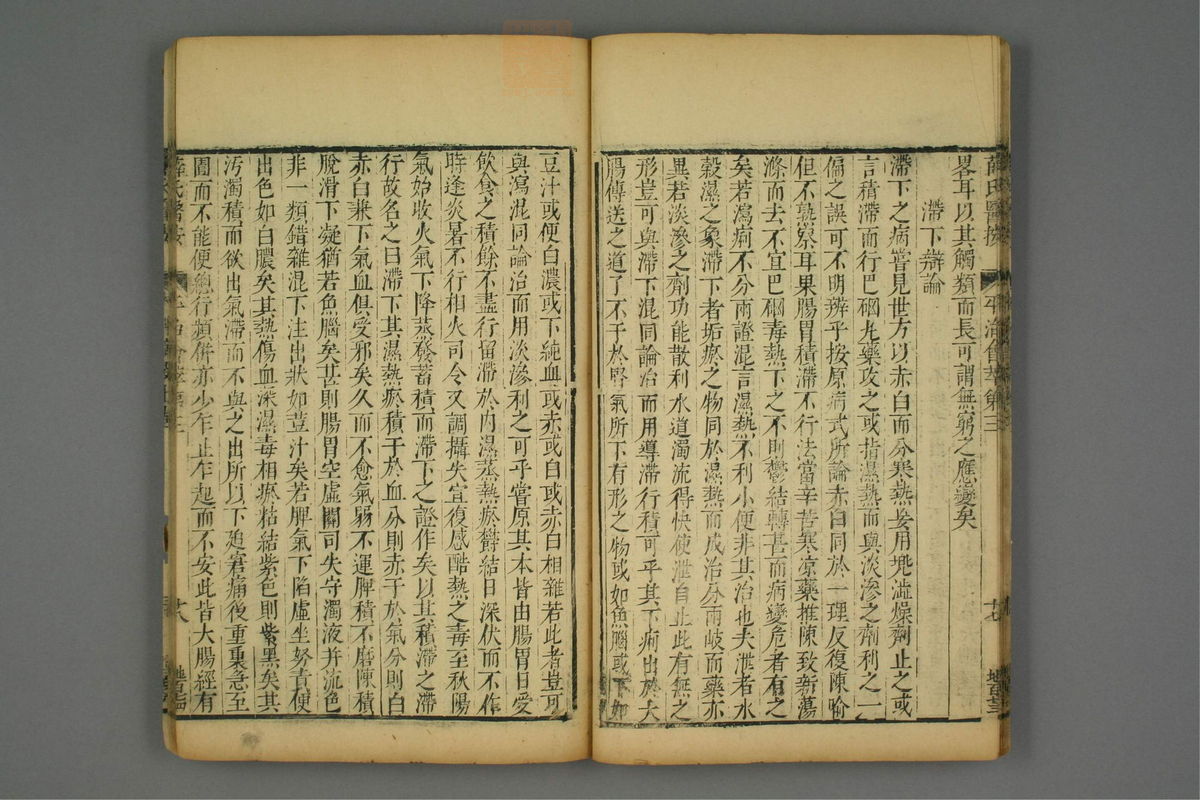 薛氏醫按 平治會萃卷三 廿七
畧耳以其觸類而長可謂無窮之應變矣
滯下辯論
滯下之病嘗見世方以赤白而分寒熱妄用兜澁燥劑止之或
言積滯而行巴硇丸藥攻之或指濕熱而與淡滲之劑利之一
偏之誤可不明辨乎按原病式所論赤白同於一理反復陳喻
但不熟察耳果腸胃積滯不行法當辛苦寒凉藥推陳致新蕩
滌而去不宜巴硇毒熱下之不則鬱結轉甚而病變危者有之
矣若瀉痢不分兩證混言濕熱不利小便非其治也夫泄者水
穀濕之象滯下者垢瘀之物同於濕熱而成治分兩岐而藥亦
異若淡滲之劑功能散利水道濁流得快使泄自止此有無之
形豈可與滯下混同論治而用導滯行積可乎其下痢出於大
腸傳送之道了不干於腎氣所下有形之物或如魚腦或下如
豆汁或便白濃或下純血或赤或白或赤白相雜若此者豈可
與瀉混同論治而用淡滲利之可乎嘗原其本皆由腸胃日受
飲食之積餘不盡行留滯於內濕蒸熱瘀欝結日深伏而不作
時逢炎暑不行相火司令又調攝失宜復感酷熱之毒至秋陽
氣始收火氣下降蒸發蓄積而滯下之證作矣以其積滯之滯
行故名之曰滯下其濕熱瘀積于於血分則赤于於氣分則白
赤白兼下氣血俱受邪矣久而不愈氣弱不運脾積不磨陳積
脫滑下凝猶若魚腦矣甚則腸胃空虛關司失守濁液并流色
非一類錯雜混下注出狀如荳汁矣若脾氣下陷虛坐努責便
出色如白膿矣其熱傷血深濕毒相瘀粘結紫色則紫黑矣其
汚濁積而欲出氣滯而不與之出所以下廹窘痛後重裏急至
圊而不能便總行頻併亦少乍止乍起而不安此皆大腸經有
薛氏醫按